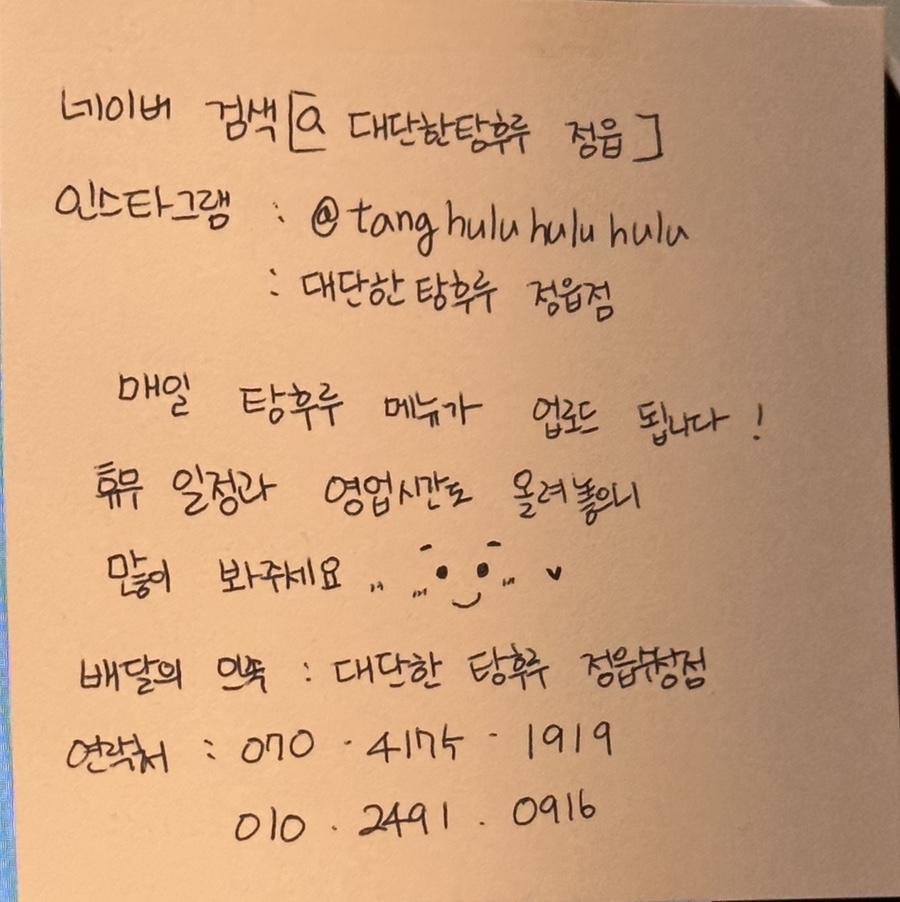 네이버 검색 [a 대단한탕후루 정읍]
인스타그램 : @tanghuluhuluhulu
: 대단한탕후루 정읍점
매일 탕후루 메뉴가 업로드 됩니다!
휴무 일정과 영업시간도 올려놓으니
많이 봐주세요
배달의 민족 : 대단한 탕후루
연락처 : 070 - 4175 - 1919
010 . 2491 . 0916